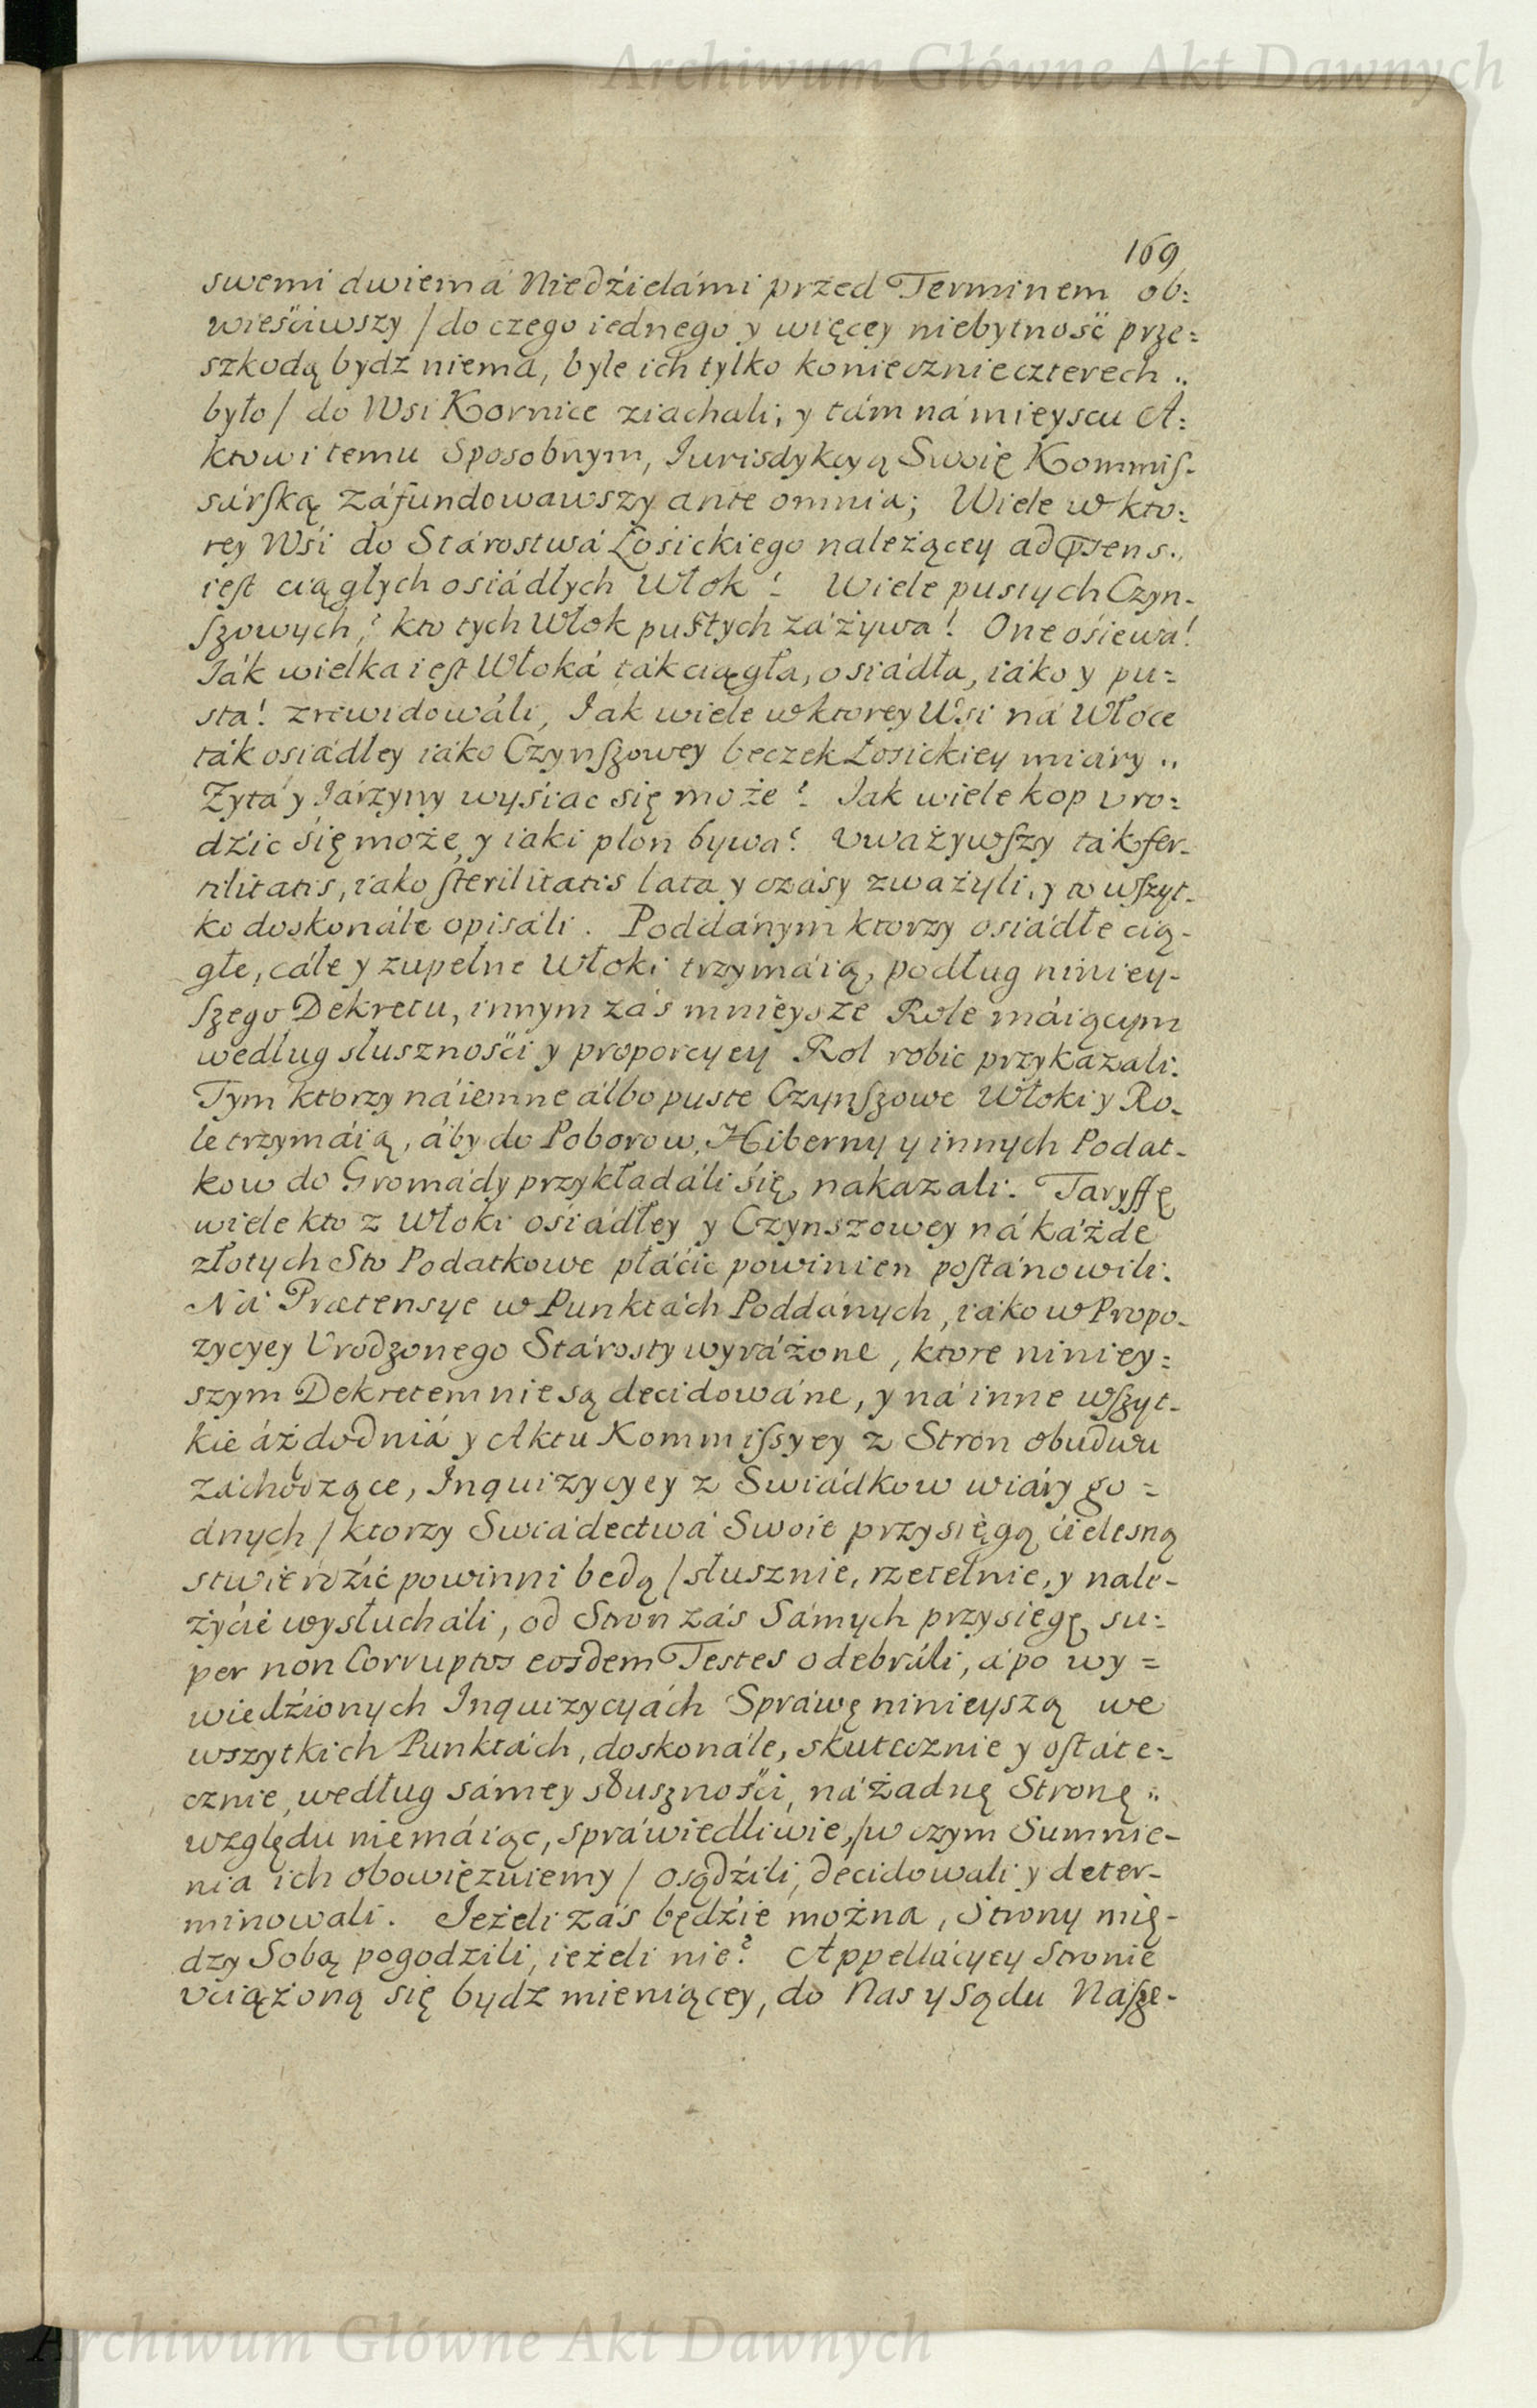 Archiwum Główne Akt Dawnych
169
swemi dwiemá Niedźielámi przed Terminem ob:
wieśćiwszy / do czego iednego y więcey niebytność prze:
szkodą bydź niema, byle ich tylko koniecznie czterech ..
było / do Wsi Kornice ziachali, y tám ná mieyscu A:
ktowi temu Sposobnym, Iurisdykcyą Swoię Kommiſ-
sárſką záfundowawszy ante omnia; Wiele w kto:
rey Wśi do Stárostwá Łosickiego należącey ad præsens..
ieſt ciągłych osiádłych Włok? Wiele pustych Czyn-
ſzowych? kto tych Włok pustych záżywa! One ośiewa!
Ják wielka ieſt Włoká ták ciągła, osiádła, iáko y pu:
sta! zrewidowáli, Iak wiele w ktorey Wsi ná Włoce
ták osiádłey iáko Czynſzowey beczek Łosickiey miáry ..
Zytá y Iárzyny wyśiac się może? Iak wiele kop vro:
dźic się może, y iaki plon bywa? vważywſzy ták fer-
tilitatis, iako ſterilitatis lata y czásy zważyli, y to wſzyt-
ko doskonále opisáli. Poddánym ktorzy osiádłe cią-
głe, cáłe y zupełne Włoki trzymáią, podług niniey-
ſzego Dekretu, innym zás mnieysze Role máiącym
według słusznośći y proporcyey Rol robic przykazali.
Tym ktorzy náiemne álbo puste Czynſzowe Włoki y Ro-
le trzymáią, áby do Poborow, Hiberny y innych Podat-
kow do Gromády przykładáli się, nakazali. Taryffę
wiele kto z Włoki ośiádłey y Czynszowey ná każde
złotych Sto Podatkowe płáćić powinien poſtánowili.
Ná Prætensye w Punktách Poddánych, iako w Propo-
zycyey Vrodzonego Stárosty wyráżone, ktore niniey:
szym Dekretem nie są decidowáne, y ná inne wſzyt-
kie áż do dniá y Aktu Kommiſsyey z Stron obudwu
záchodzące, Inquizycyey z Swiádkow wiáry go =
dnych / ktorzy Swiádectwá Swoie przysięgą ćielesną
stwierdźić powinni będą / słusznie, rzetelnie, y nale-
życie wysłucháli, od Stron zás Sámych przysięgę su:
per non Corruptos eosdem Testes odebráli, á po wy =
wiedźionych Inquizycyách Spráwę ninieyszą we
wszytkich Punktách, doskonále, skutecznie y oſtáte:
cznie, według sámey słuszności, ná żadnę Stronę ..
względu niemáiąc, spráwiedliwie, /w czym Sumnie-
nia ich obowięzuiemy / osądźili, decidowali y deter-
minowali. Ieżeli zás będźie można, Strony mię-
dzy Sobą pogodzili, ieżeli nie? Appellácyey Stronie
vciążoną się bydz mieniącey, do Nas y Sądu Naſze-
Archiwum Główne Akt Dawnych